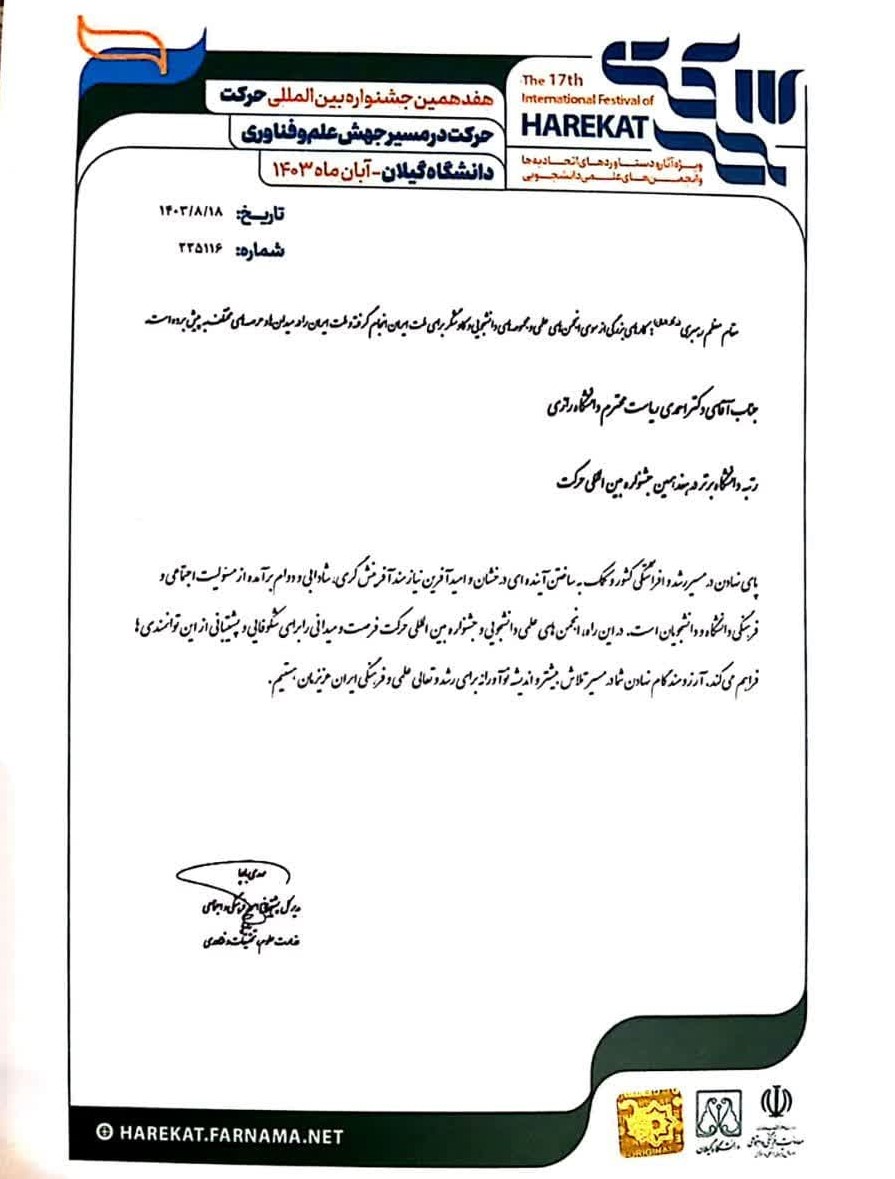 The 17th
International Festival of
HAREKAT
حرکت
ویژه آثار و دستاوردهای اتحادیه‌ها
و انجمن‌های علمی دانشجویی
هفدهمین جشنواره بین المللی حرکت
حرکت در مسیر جهش علم و فناوری
دانشگاه گیلان - آبان ماه ۱۴۰۳
تاریخ: ۱۴۰۳/۸/۱۸
شماره: ۲۲۵۱۱۶
مقام معظم رهبری: کارهای بزرگی از سوی انجمن های علمی و مجموعه های دانشجویی و کاوشگر برای ملت ایران انجام گرفته و ملت ایران را در میدان ها و عرصه های مختلف به پیش برده است.
جناب آقای دکتر احمدی ریاست محترم دانشگاه رازی
رتبه دانشگاه برتر در هفدهمین جشنواره بین المللی حرکت
پای نهادن در مسیر رشد و افراشتگی کشور و کمک به ساختن آینده ای درخشان و امید آفرین نیازمند آفرینش گری، شادابی و دوام برآمده از مسئولیت اجتماعی و
فرهنگی دانشگاه و دانشجویان است. در این راه، انجمن های علمی دانشجویی و جشنواره بین المللی حرکت فرصت و میدانی را برای شکوفایی و پشتیبانی از این توانمندی ها
فراهم می کند. آرزومند گام نهادن شما در مسیر تلاش بیشتر و اندیشه نوآورانه برای رشد و تعالی علمی و فرهنگی ایران عزیزمان هستیم.
مدیر کل پشتیبانی امور فرهنگی و اجتماعی
وزارت علوم، تحقیقات و فناوری
HAREKAT.FARNAMA.NET
ORIGINAL
دانشگاه گیلان